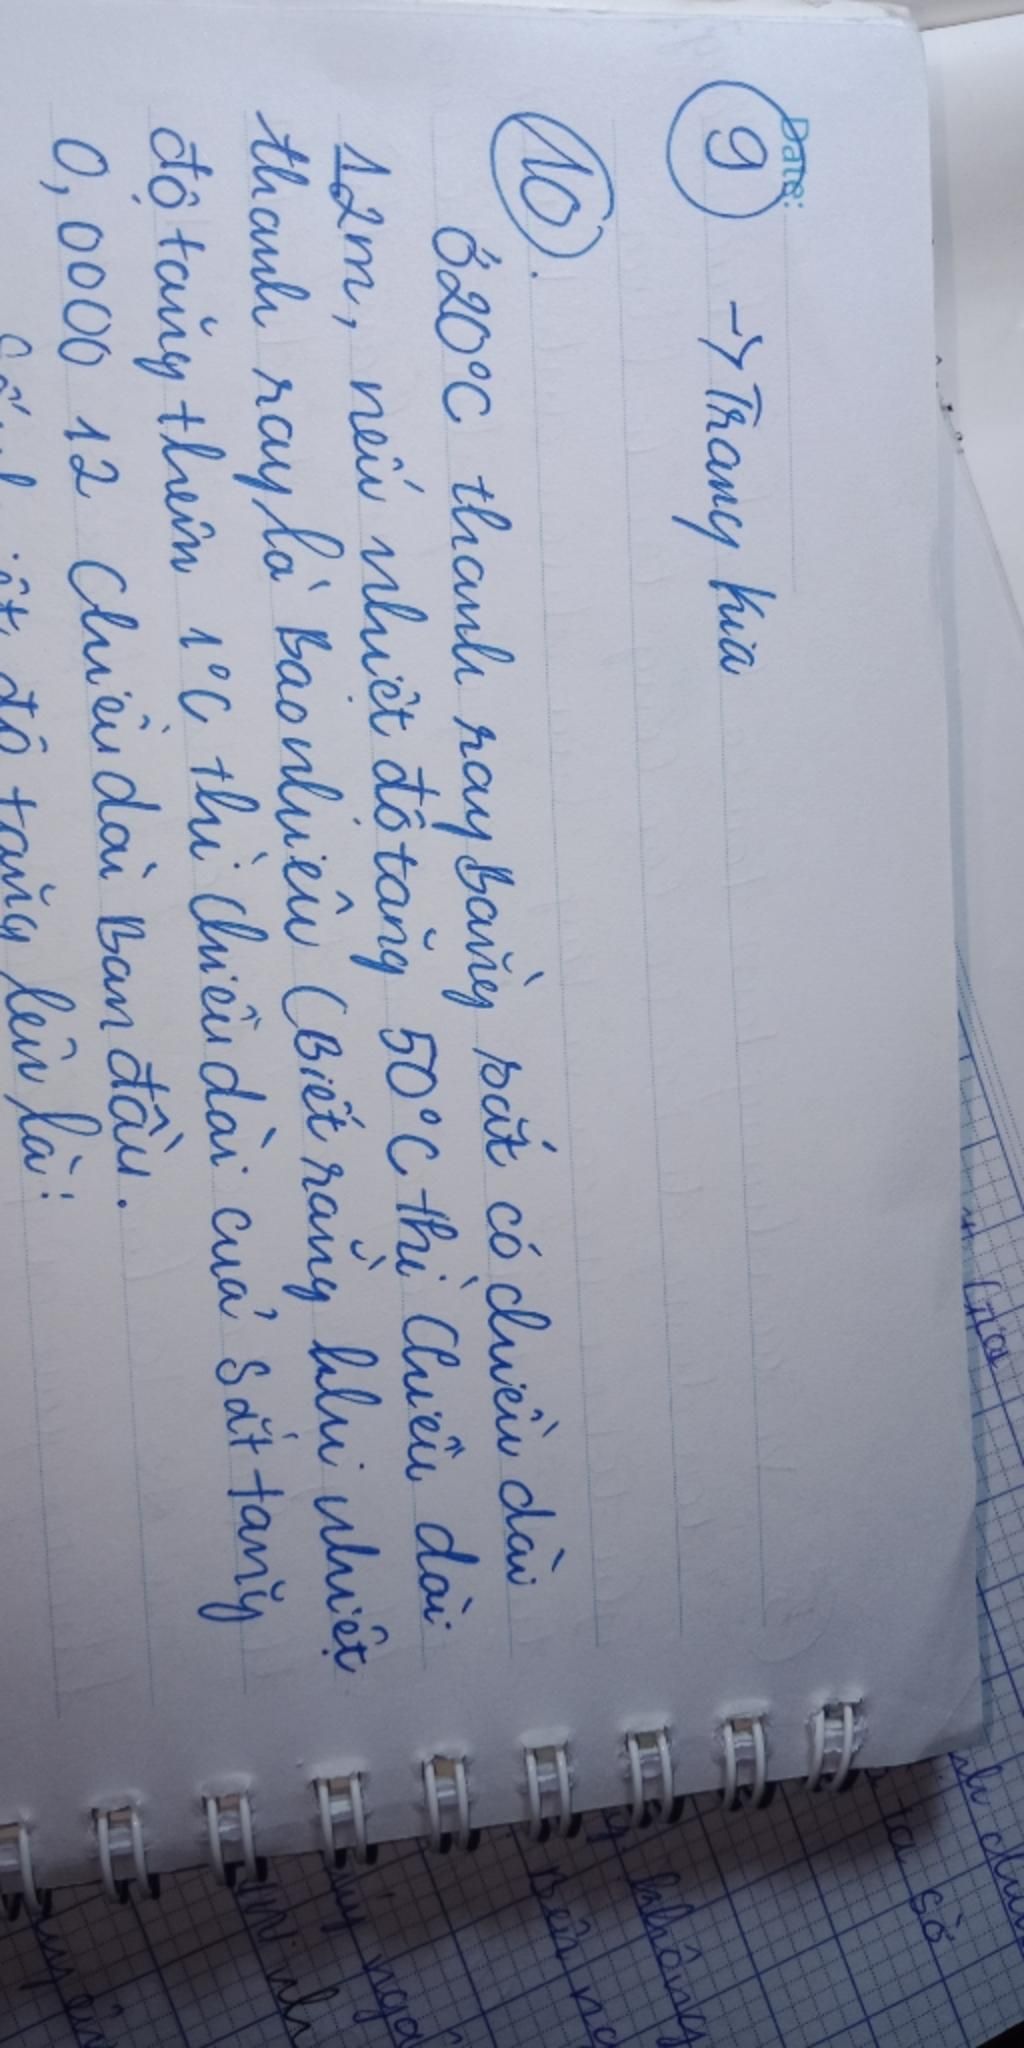 Date:
9 → Trang kia
10.
Ở 20°C thanh ray bằng sắt có chiều dài
12m, nếu nhiệt độ tăng 50°C thì chiều dài
thanh ray là bao nhiêu (Biết rằng khi nhiệt
độ tăng thêm 1°C thì chiều dài của sắt tăng
0,0000 12 chiều dài ban đầu.
độ tăng lên là: